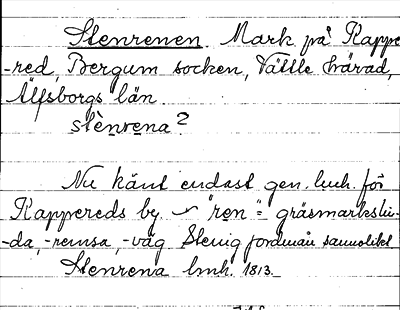 Stenrenen. Mark på Kappe
-red, Bergum socken, Vättle härad,
Älfsborgs län.
stènrena?
Nu känt endast gen. lmh. för
Kappereds by. "ren" = gräsmarksli-
-da, -remsa, -väg. Stenig jordmån sannolikt
Stenrena lmh. 1813.